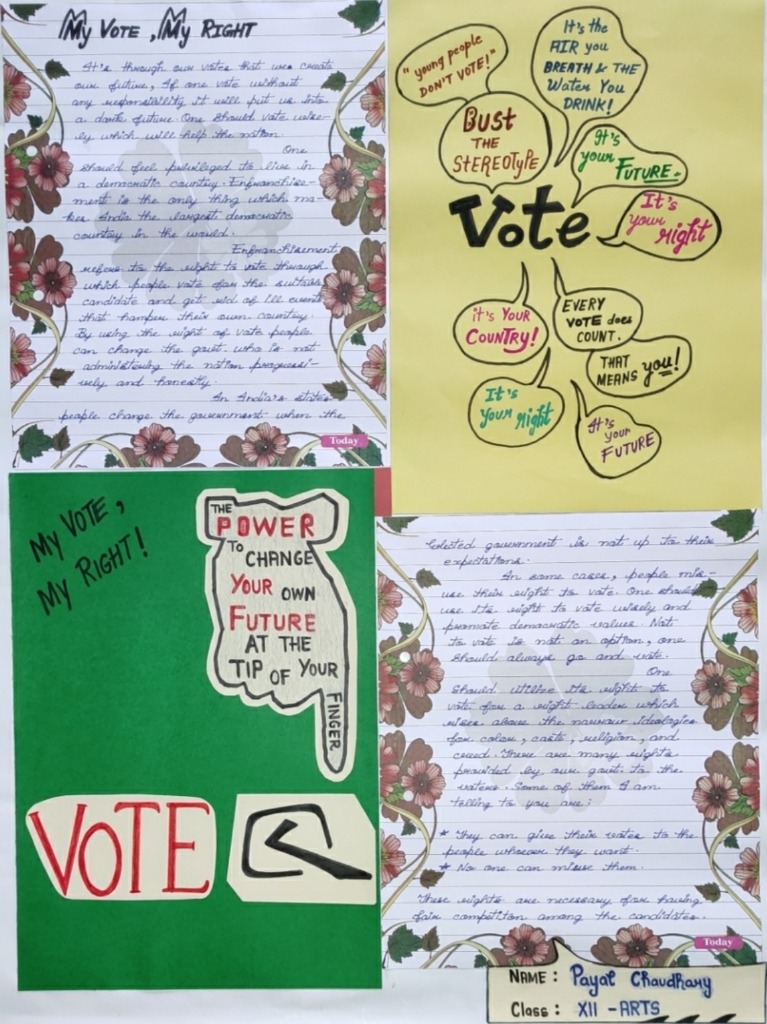 My Vote, My Right
It's through our votes that we create
our future, If one vote without
any responsibility it will put us into
a dark future. One should vote wise-
ly which will help the nation.
One
should feel privileged to live in
a democratic country. Enfranchise-
ment is the only thing which ma-
kes India the largest democratic
country in the world.
Enfranchisement
refers to the right to vote through
which people vote for the suitable
candidate and get rid of
that hamper their own country.
By using the right of vote people
can change the govt. who is not
administering the nation progressi-
vely and honestly.
In India's states
people change the government when the
Today
"young people
DON'T VOTE!"
It's the
AIR you
BREATH & THE
Water You
DRINK!
BUST
THE
STEREOTYPE
It's
your
FUTURE.
Vote
It's
your right
it's YOUR
COUNTRY!
EVERY
VOTE does
COUNT.
THAT
MEANS you!
It's
your right
It's
your
FUTURE
MY VOTE,
MY RIGHT!
THE
POWER
TO CHANGE
YOUR OWN
FUTURE
AT THE
TIP OF YOUR
FINGER
VOTE
Elected government is not up to their
expectations.
In some cases, people mis-
use their right to vote. One should
use its right to vote wisely and
promote democratic values. Not
to vote is not an option, one
should always go and vote.
One
should utilize its right to
vote for a right leader which
rises above the narrow ideologies
for color, caste, religion, and
creed. There are many rights
provided by our govt. to the
voters. Some of them I am
telling to you are:
* They can give their votes to the
people whoever they want.
* No one can misuse them.
These rights are necessary for having
fair competiton among the candidates.
Today
NAME: Payal Chaudhary
Class: XII-ARTS